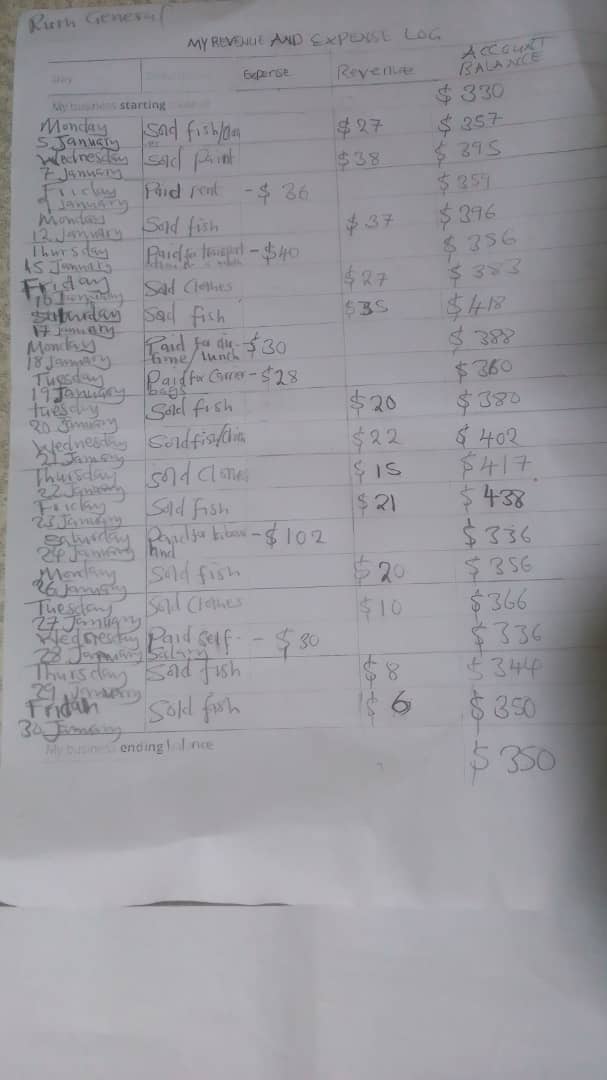 Ruth General
MY REVENUE AND EXPENSE LOG
Day Expense Revenue ACCOUNT
BALANCE
My business starting $ 330
Monday Sold fish/ $27 $ 357
5 January
Wednesday Sold paint $38 $ 395
7 January
Friday Paid rent -$ 36 $ 359
9 January
Monday Sold fish $37 $396
12 January
Thursday Paid for transport -$40 $ 356
15 January
Friday Sold Clothes $27 $ 383
16 January
Saturday Sold fish $35 $418
17 January
Monday Paid for -$30 $ 388
18 January time/lunch
Tuesday Paid for Carrier -$28 $ 360
19 January bags
tuesday Sold fish $20 $ 380
20 January
Wednesday Sold fish/ $22 $ 402
21 January
Thursday Sold Clothes $ 15 $417
22 January
Friday Sold fish $21 $ 438
23 January
Saturday Paid for -$102 $ 336
24 January
Monday Sold fish $20 $ 356
26 January
Tuesday Sold Clothes $10 $366
27 January
Wednesday Paid self - $30 $ 336
28 January Salary
Thursday Sold fish $8 $ 344
29 January
Fridah Sold fish $ 6 $ 350
30 January
My business ending balance $ 350